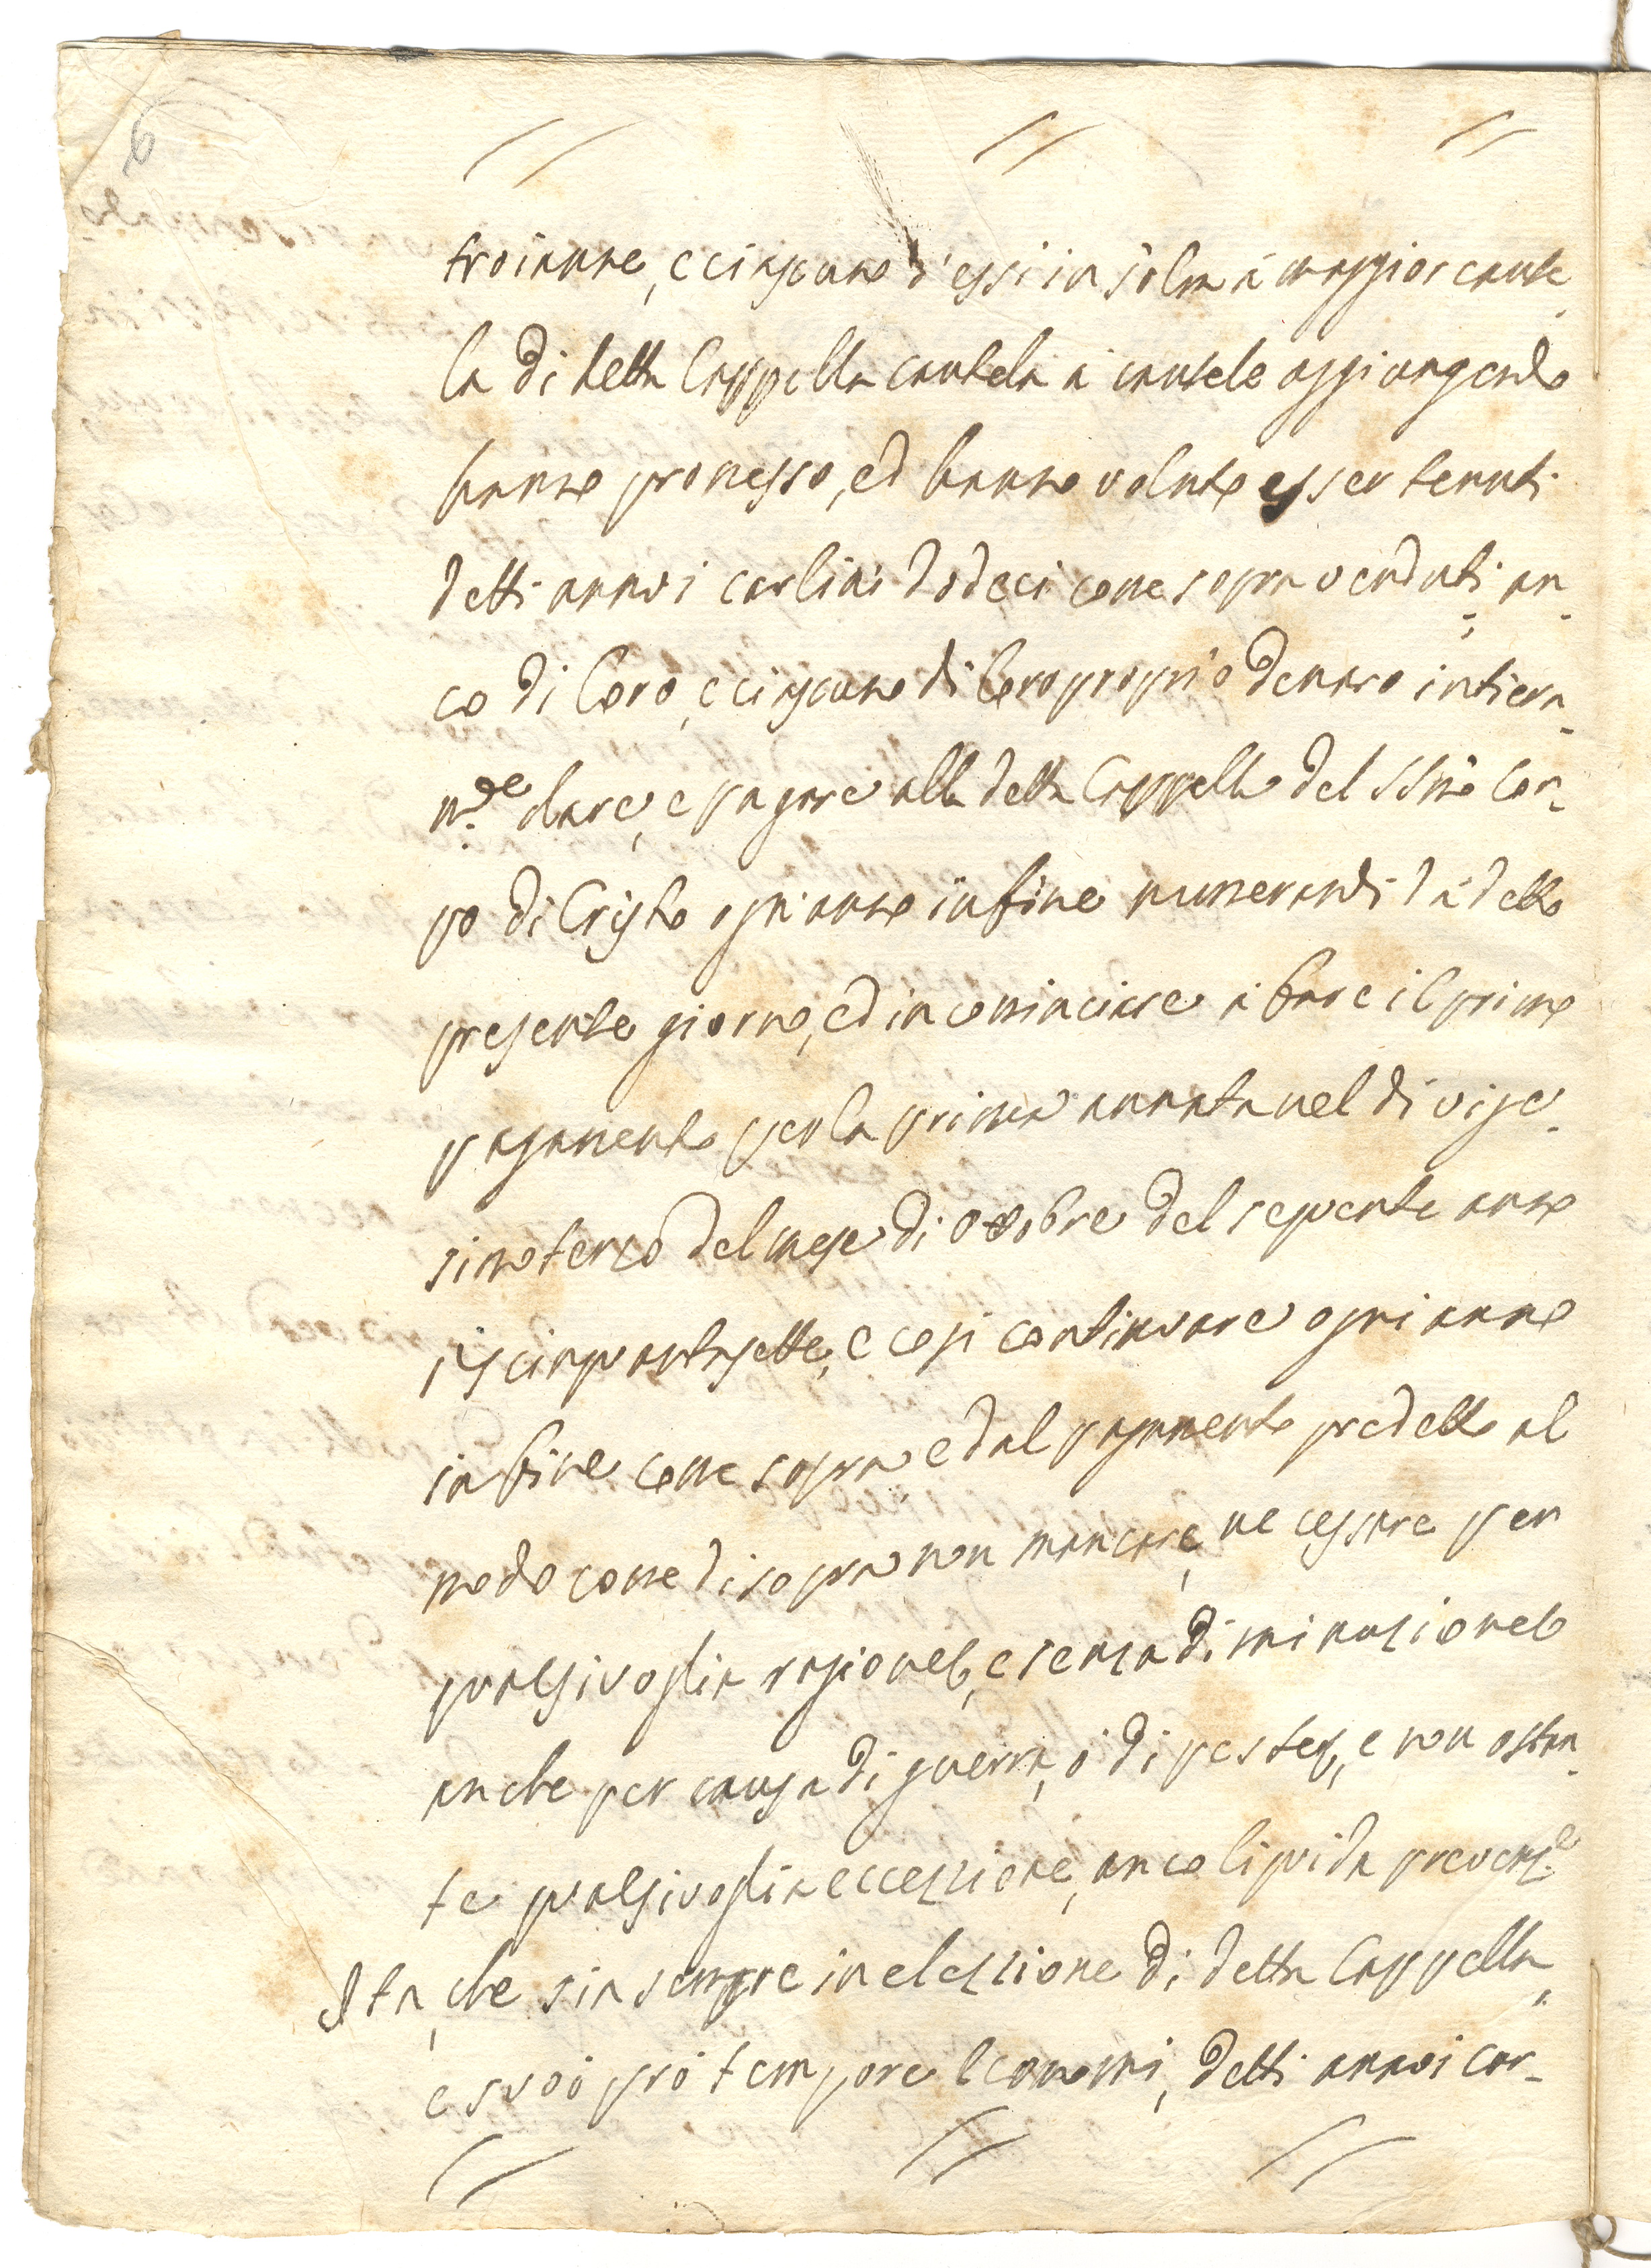 6
troianne, e ciascuno d'essi in solm à maggior caute
la di detta Cappella cautela à cautele aggiungendo
hanno promesso, ed hanno voluto esser tenuti
detti annoi carlini dodeci come sopra venduti an-
co di loro, e ciascuno di loro proprio denaro intiera-
m.te dare, e pagare alla detta Cappella del SSmo Cor-
po di Cristo ogni anno infine numerandi dà detto
presente giorno, ed incominciare à fare il primo
pagamento per la prima annata nel dì vige-
simo terzo del mese di ottobre del seguente anno
cinquantasette, e così continuare ogni anno
in fine come sopra, e dal pagamento predetto al
modo come di sopra non mancare, ne cessare per
qualsivoglia ragione, e senza diminuzione
anche per causa di guerra, ò di peste, e non ostan-
te qualsivoglia eccezzione, anco liquida prevent.e
Ita, che sia sempre in elezzione di detta Cappella,
e suoi prò tempore Economi, detti annoi car-